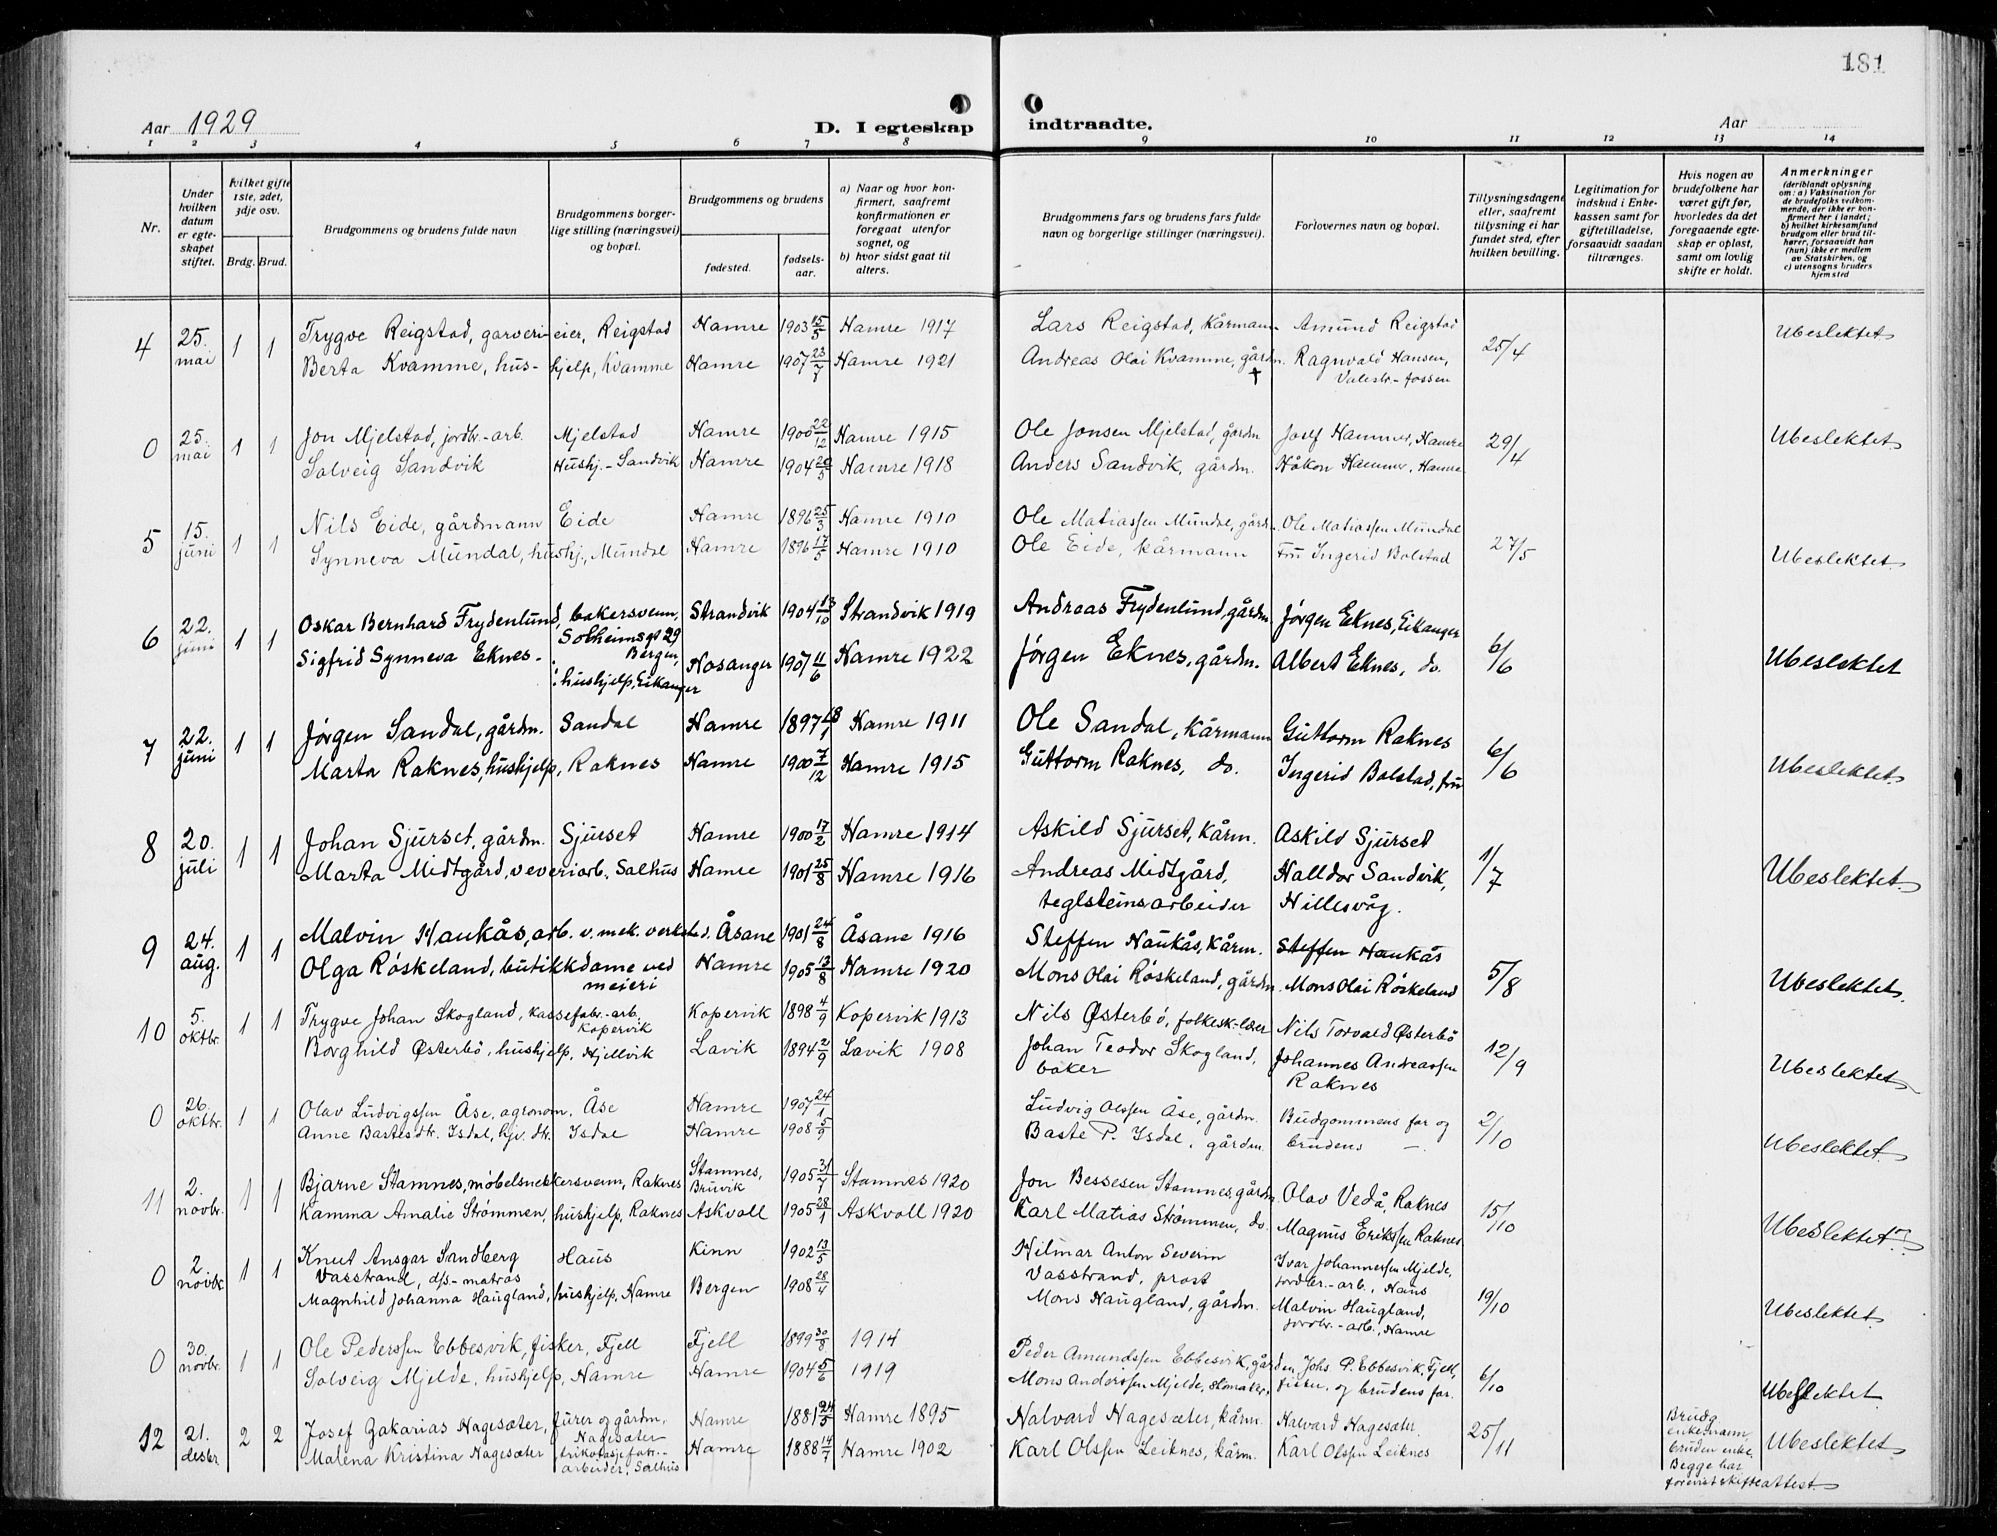 181
Aar 1929
D. I egteskap indtraadte.
Aar
1 2 3 4 5 6 7 8 9 10 11 12 13 14
Nr.
Under hvilken datum er egteskapet stiftet.
Hvilket gifte 1ste, 2det, 3dje osv.
Brdg. Brud.
Brudgommens og brudens fulde navn
Brudgommens borgerlige stilling (næringsvei) og bopæl.
Brudgommens og brudens
fødested. fødselsaar.
a) Naar og hvor konfirmert, saafremt konfirmationen er foregaat utenfor sognet, og
b) hvor sidst gaat til alters.
Brudgommens fars og brudens fars fulde navn og borgerlige stillinger (næringsvei).
Forlovernes navn og bopæl.
Tillysningsdagene eller, saafremt tillysning ei har fundet sted, efter hvilken bevilling.
Legitimation for indskud i Enkekassen samt for giftetilladelse, forsaavidt saadan tiltrænges.
Hvis nogen av brudefolkene har været gift før, hvorledes da det foregaaende egteskap er opløst, samt om lovlig skifte er holdt.
Anmerkninger
(deriblandt oplysning om: a) Vaksination for de brudefolks vedkommende, der ikke er konfirmert her i landet; b) hvilket kirkesamfund brudgom eller brud tilhører, forsaavidt han (hun) ikke er medlem av Statskirken, og c) utensogns bruders hjemsted
4 25. mai 1 1 Trygve Reigstad, garverieier, Reigstad Hamre 1903 15/5 Hamre 1917 Lars Reigstad, kårmann Amund Reigstad 25/4 Ubeslektet
Berta Kvamme, hushjelp, Kvamme Hamre 1907 23/7 Hamre 1921 Andreas Olai Kvamme, gårdm. † Ragnvald Hansen, Valestr.-fossen
0 25. mai 1 1 Jon Mjelstad, jordbr.-arb. Mjelstad Hamre 1900 22/12 Hamre 1915 Ole Jonsen Mjelstad, gårdm Josef Hammer, Hamre 29/4 Ubeslektet
Solveig Sandvik Hushj.- Sandvik Hamre 1904 20/5 Hamre 1918 Anders Sandvik, gårdm. Håkon Hammer, Hamre
5 15. juni 1 1 Nils Eide, gårdmann Eide Hamre 1896 25/3 Hamre 1910 Ole Matiassen Mundal, gårdm. Ole Matiassen Mundal 27/5 Ubeslektet
Synneva Mundal, hushj., Mundal Hamre 1896 17/5 Hamre 1910 Ole Eide, kårmann Fru Ingerid Bolstad
6 22. juni 1 1 Oskar Bernhard Frydenlund, bakersvenn, Solheimsgt 29 Bergen, Strandvik 1904 13/10 Strandvik 1919 Andreas Frydenlund, gårdm. Jørgen Eknes, Eikanger 6/6 Ubeslektet
Sigfrid Synneva Eknes - hushjelp, Eikanger Hosanger 1907 11/6 Hamre 1922 Jørgen Eknes, gårdm. Albert Eknes, do.
7 22. juni 1 1 Jørgen Sandal, gårdm. Sandal Hamre 1897 Hamre 1911 Ole Sandal, kårmann Guttorm Raknes 6/6 Ubeslektet
Marta Raknes, hushjelp, Raknes Hamre 1900 7/12 Hamre 1915 Guttorm Raknes, do. Ingerid Bolstad, fru
8 20. juli 1 1 Johan Sjurset, gårdm. Sjurset Hamre 1900 17/2 Hamre 1914 Askild Sjurset, kårm. Askild Sjurset 1/7 Ubeslektet
Marta Midtgård, veveriarb. Salhus Hamre 1901 25/8 Hamre 1916 Andreas Midtgård, teglsteinsarbeider Halldor Sandvik, Hillesvåg.
9 24. aug. 1 1 Malvin Haukås, arb. v. mek. verksted. Åsane 1901 24/8 Åsane 1916 Steffen Haukås, kårm. Steffen Haukås 5/8 Ubeslektet.
Olga Røskeland, butikkdame ved meieri Hamre 1905 13/8 Hamre 1920 Mons Olai Røskeland, gårdm. Mons Olai Røskeland
10 5. oktbr. 1 1 Trygve Johan Skogland, kassefabr.-arb. Kopervik Kopervik 1898 4/9 Kopervik 1913 Nils Østerbö, folkesk.-lærer Nils Torvald Østerbö 12/9 Ubeslektet
Borghild Østerbö, hushjelp, Hjellvik Lavik 1894 2/9 Lavik 1908 Johan Teodor Skogland, baker Johannes Andreassen Raknes
0 26. oktbr. 1 1 Olav Ludvigssen Åse, agronom, Åse Hamre 1907 24/1 Ludvig Olssen Åse, gårdm. Budgommens far og 2/10 Ubeslektet
Anne Bastesdtr. Isdal, hjv. dtr. Isdal Hamre 1908 5/9 Baste P. Isdal, gårdm. brudens —
11 2. novbr. 1 1 Bjarne Stamnes, møbelsnekkersvenn, Raknes Stamnes, Bruvik 1905 31/7 Stamnes 1920 Jon Bessesen Stamnes, gårdm. Olav Vedå, Raknes 15/10 Ubeslektet
Kamma Amalie Strømmen, hushjelp, Raknes Askvoll 1905 28/1 Askvoll 1920 Karl Matias Strømmen, do. Magnus Erikssen Raknes
0 2. novbr. 1 1 Knut Ansgar Sandberg Vasstrand, d/s-matros Haus Kinn 1902 13/5 Hilmar Anton Severin Vasstrand, prost Ivar Johannessen Mjelde, jordbr.-arb., Haus 19/10 Ubeslektet
Magnhild Johanna Haugland, hushjelp, Hamre Bergen 1908 28/4 Mons Haugland, gårdm. Malvin Haugland, jordbr.-arb., Hamre
0 30. novbr. 1 1 Ole Pederssen Ebbesvik, fisker, Fjell Fjell 1899 30/8 1914 Peder Amundssen Ebbesvik, gårdm. Johs P. Ebbesvik, Fjell, fisker, og brudens far. 6/10 Ubeslektet
Solveig Mjelde, hushjelp, Hamre Hamre 1904 5/6 1919 Mons Anderssen Mjelde,
12 21. desbr 2 2 Josef Zakarias Hagesæter, fürer og gårdm, Hagesæter Hamre 1881 24/5 Hamre 1895 Halvard Hagesæter, kårm. Halvard Hagesæter. 25/11 Brudg. enkemann, bruden enke. Begge har forevist skifteattest. Ubeslektet
Malena Kristina Hagesæter trikotasjefabr.-arbeider, Salhus Hamre 1888 14/7 Hamre 1902 Karl Olssen Leiknes, kårm. Karl Olssen Leiknes